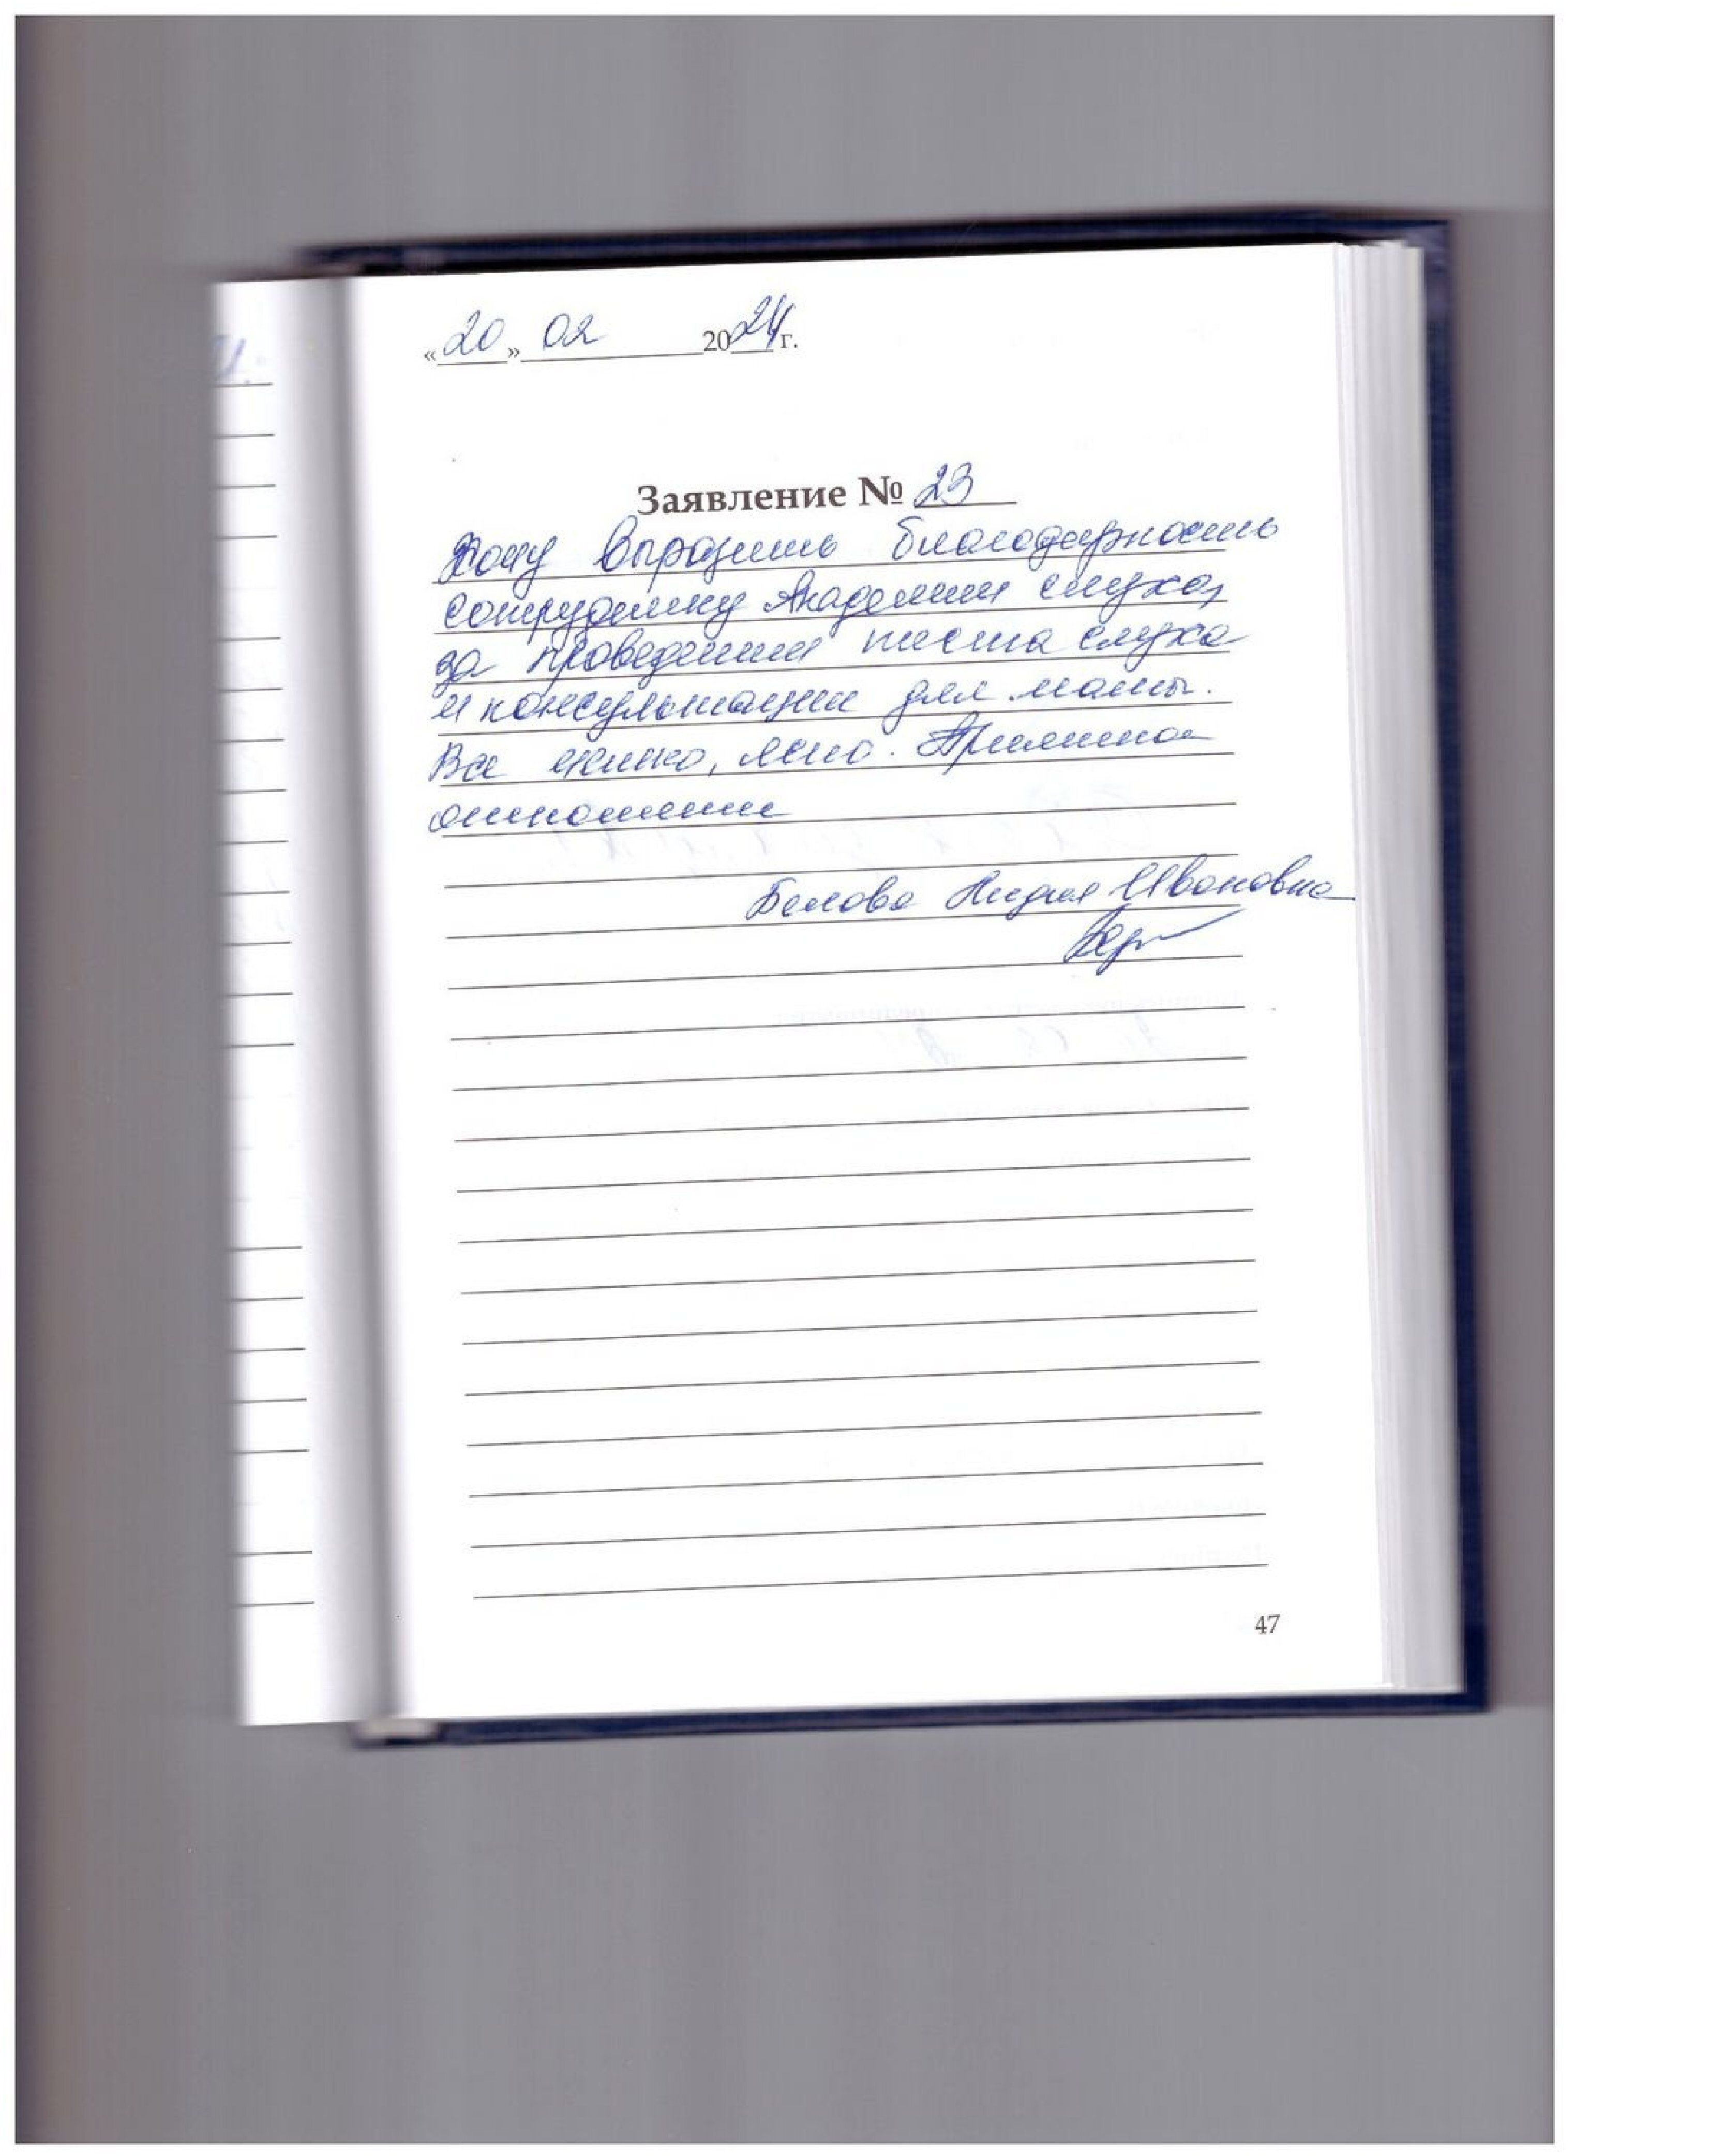 «20» 02 2024 г.
Заявление № 23
Хочу выразить благодарность
сотруднику Академии слуха,
за проведении теста слуха
и консультации для мамы.
Все четко, ясно. Приятное
отношение
Белова Лидия Ивановна
47